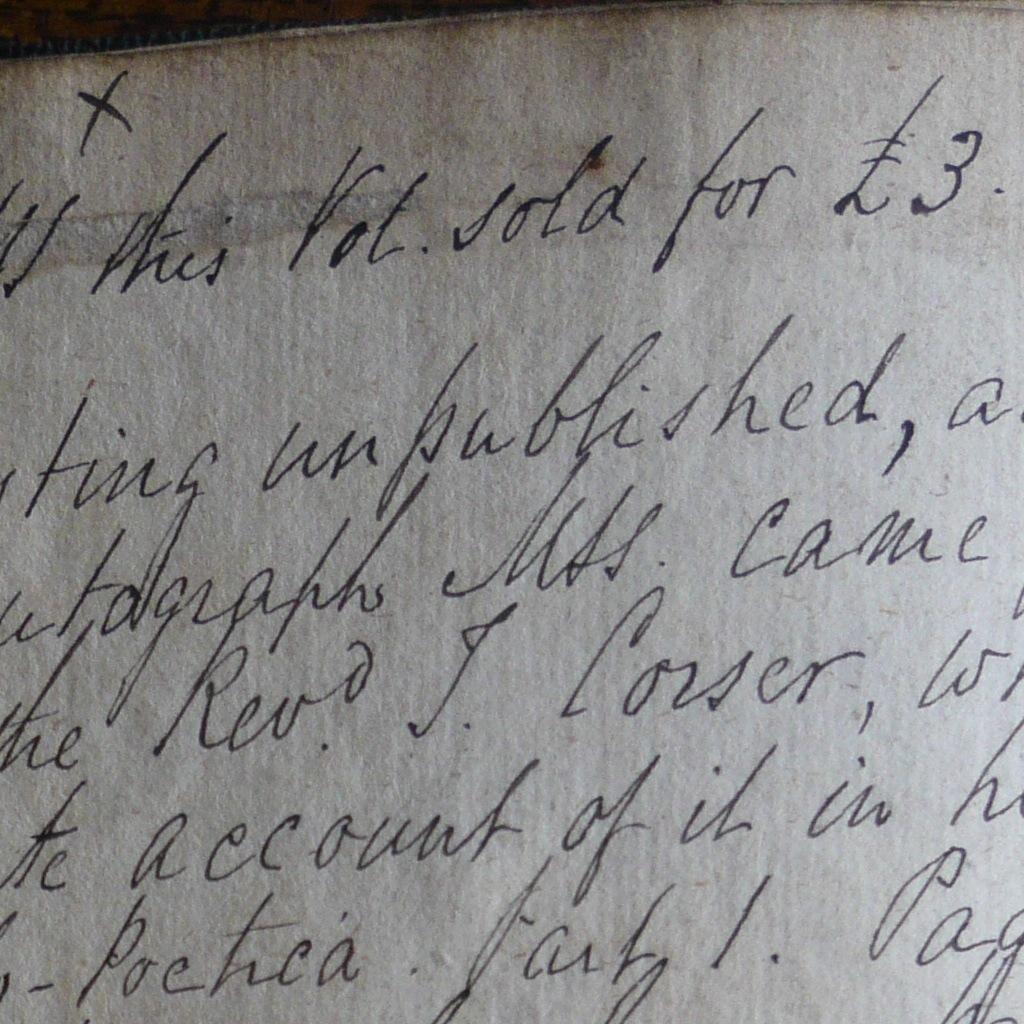 x
this Vol. sold for £3.
ting unpublished, a
utograph MSS. came
the Revd. T. Corser, wh
te account of it in hi
o-Poetica. Part 1. Pag